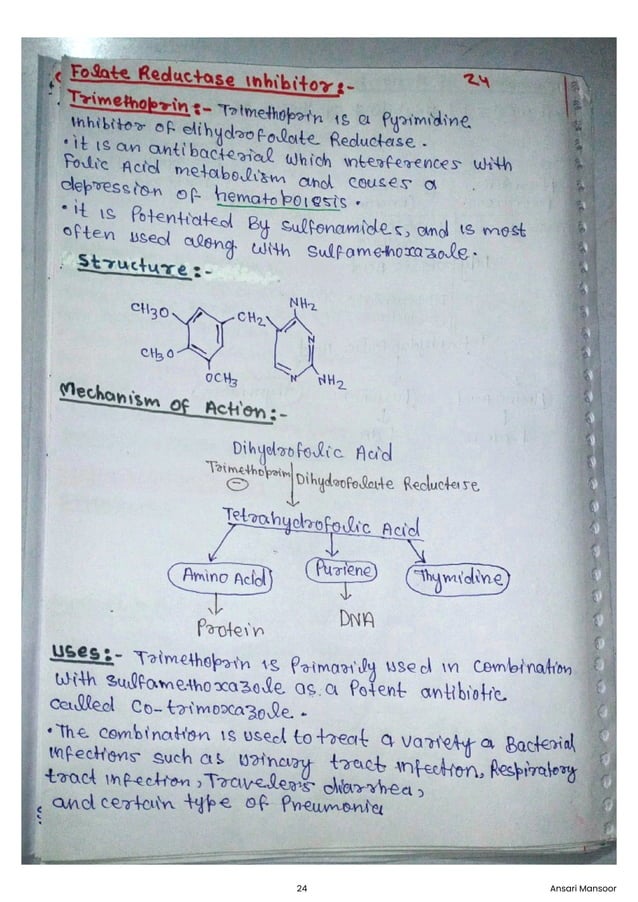 Folate Reductase Inhibitor:-
24
Trimethoprin:- Trimethoprin is a Pyrimidine
inhibitor of dihydrofolate Reductase.
•it is an antibacterial which interferences with
Folic Acid metabolism and couses a
depression of hematopoiesis.
•it is Potentiated By Sulfonamides, and is most
often used along with Sulfamethoxazole.
Structure:-
NH2
CH3O
CH2
N
CH3O
OCH3
N
NH2
Mechanism of Action:-
Dihydrofolic Acid
Trimethoprim Dihydrofolate Reductase
Tetrahydrofolic Acid
Amino Acid Puriene Thymidine
Protein DNA
Uses:- Trimethoprin is Primarily used in combination
with sulfamethoxazole as a Potent antibiotic
called Co-trimoxazole.
•The combination is used to treat a variety a Bacterial
infections such as urinary tract infection, Respiratory
tract infection, Traveler's diarrhea,
and certain type of Pneumonia
24
Ansari Mansoor